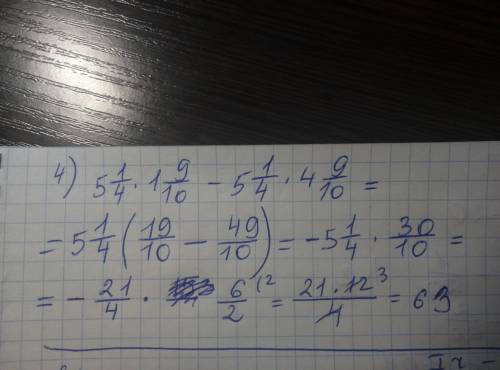 4) 5 1/4 · 1 9/10 − 5 1/4 · 4 9/10 =
= 5 1/4 ( 19/10 − 49/10 ) = −5 1/4 · 30/10 =
= − 21/4 · 6/2 12 = 21·12/4 3 = 63